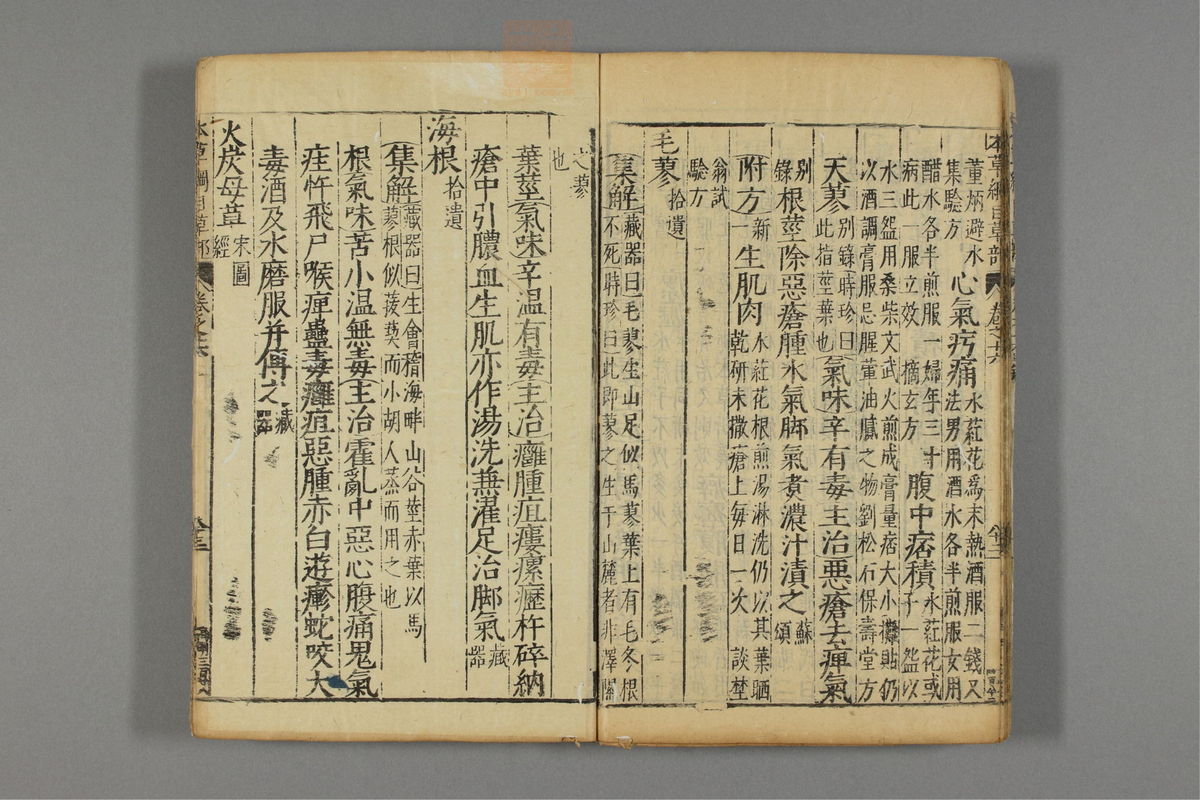 本草綱目草部 卷之十六
董炳避水集驗方
心氣㽲痛水葒花爲末熱酒服二錢又法男用酒水各半煎服女用
醋水各半煎服一婦年三十病此一服立效 摘玄方
腹中痞積水葒花或子一盌以
水三盌用桑柴文武火煎成膏量痞大小攤貼仍以酒調膏服忌腥葷油膩之物劉松石保壽堂方
天蓼別錄時珍曰此指莖葉也氣味辛有毒主治惡瘡去痺氣
別錄根莖除惡瘡腫水氣脚氣煮濃汁漬之蘇頌
附方新一生肌肉水葒花根煎湯淋洗仍以其葉晒乾研末撒瘡上每日一次 談埜
翁試驗方
毛蓼拾遺
集解藏器曰毛蓼生山足似馬蓼葉上有毛冬根不死時珍曰此即蓼之生于山麓者非澤隰
之蓼也
葉莖氣味辛温有毒主治癰腫疽瘻瘰癧杵碎納
瘡中引膿血生肌亦作湯洗兼濯足治脚氣藏器
海根拾遺
集解藏器曰生會稽海畔山谷莖赤葉以馬蓼根似菝葜而小胡人蒸而用之也
根氣味苦小温無毒主治霍亂中惡心腹痛鬼氣
疰忤飛尸喉痺蠱毒癰疽惡腫赤白遊瘮蛇咬犬
毒酒及水磨服并傅之藏器
火炭母草宋圖經
本草綱目草部